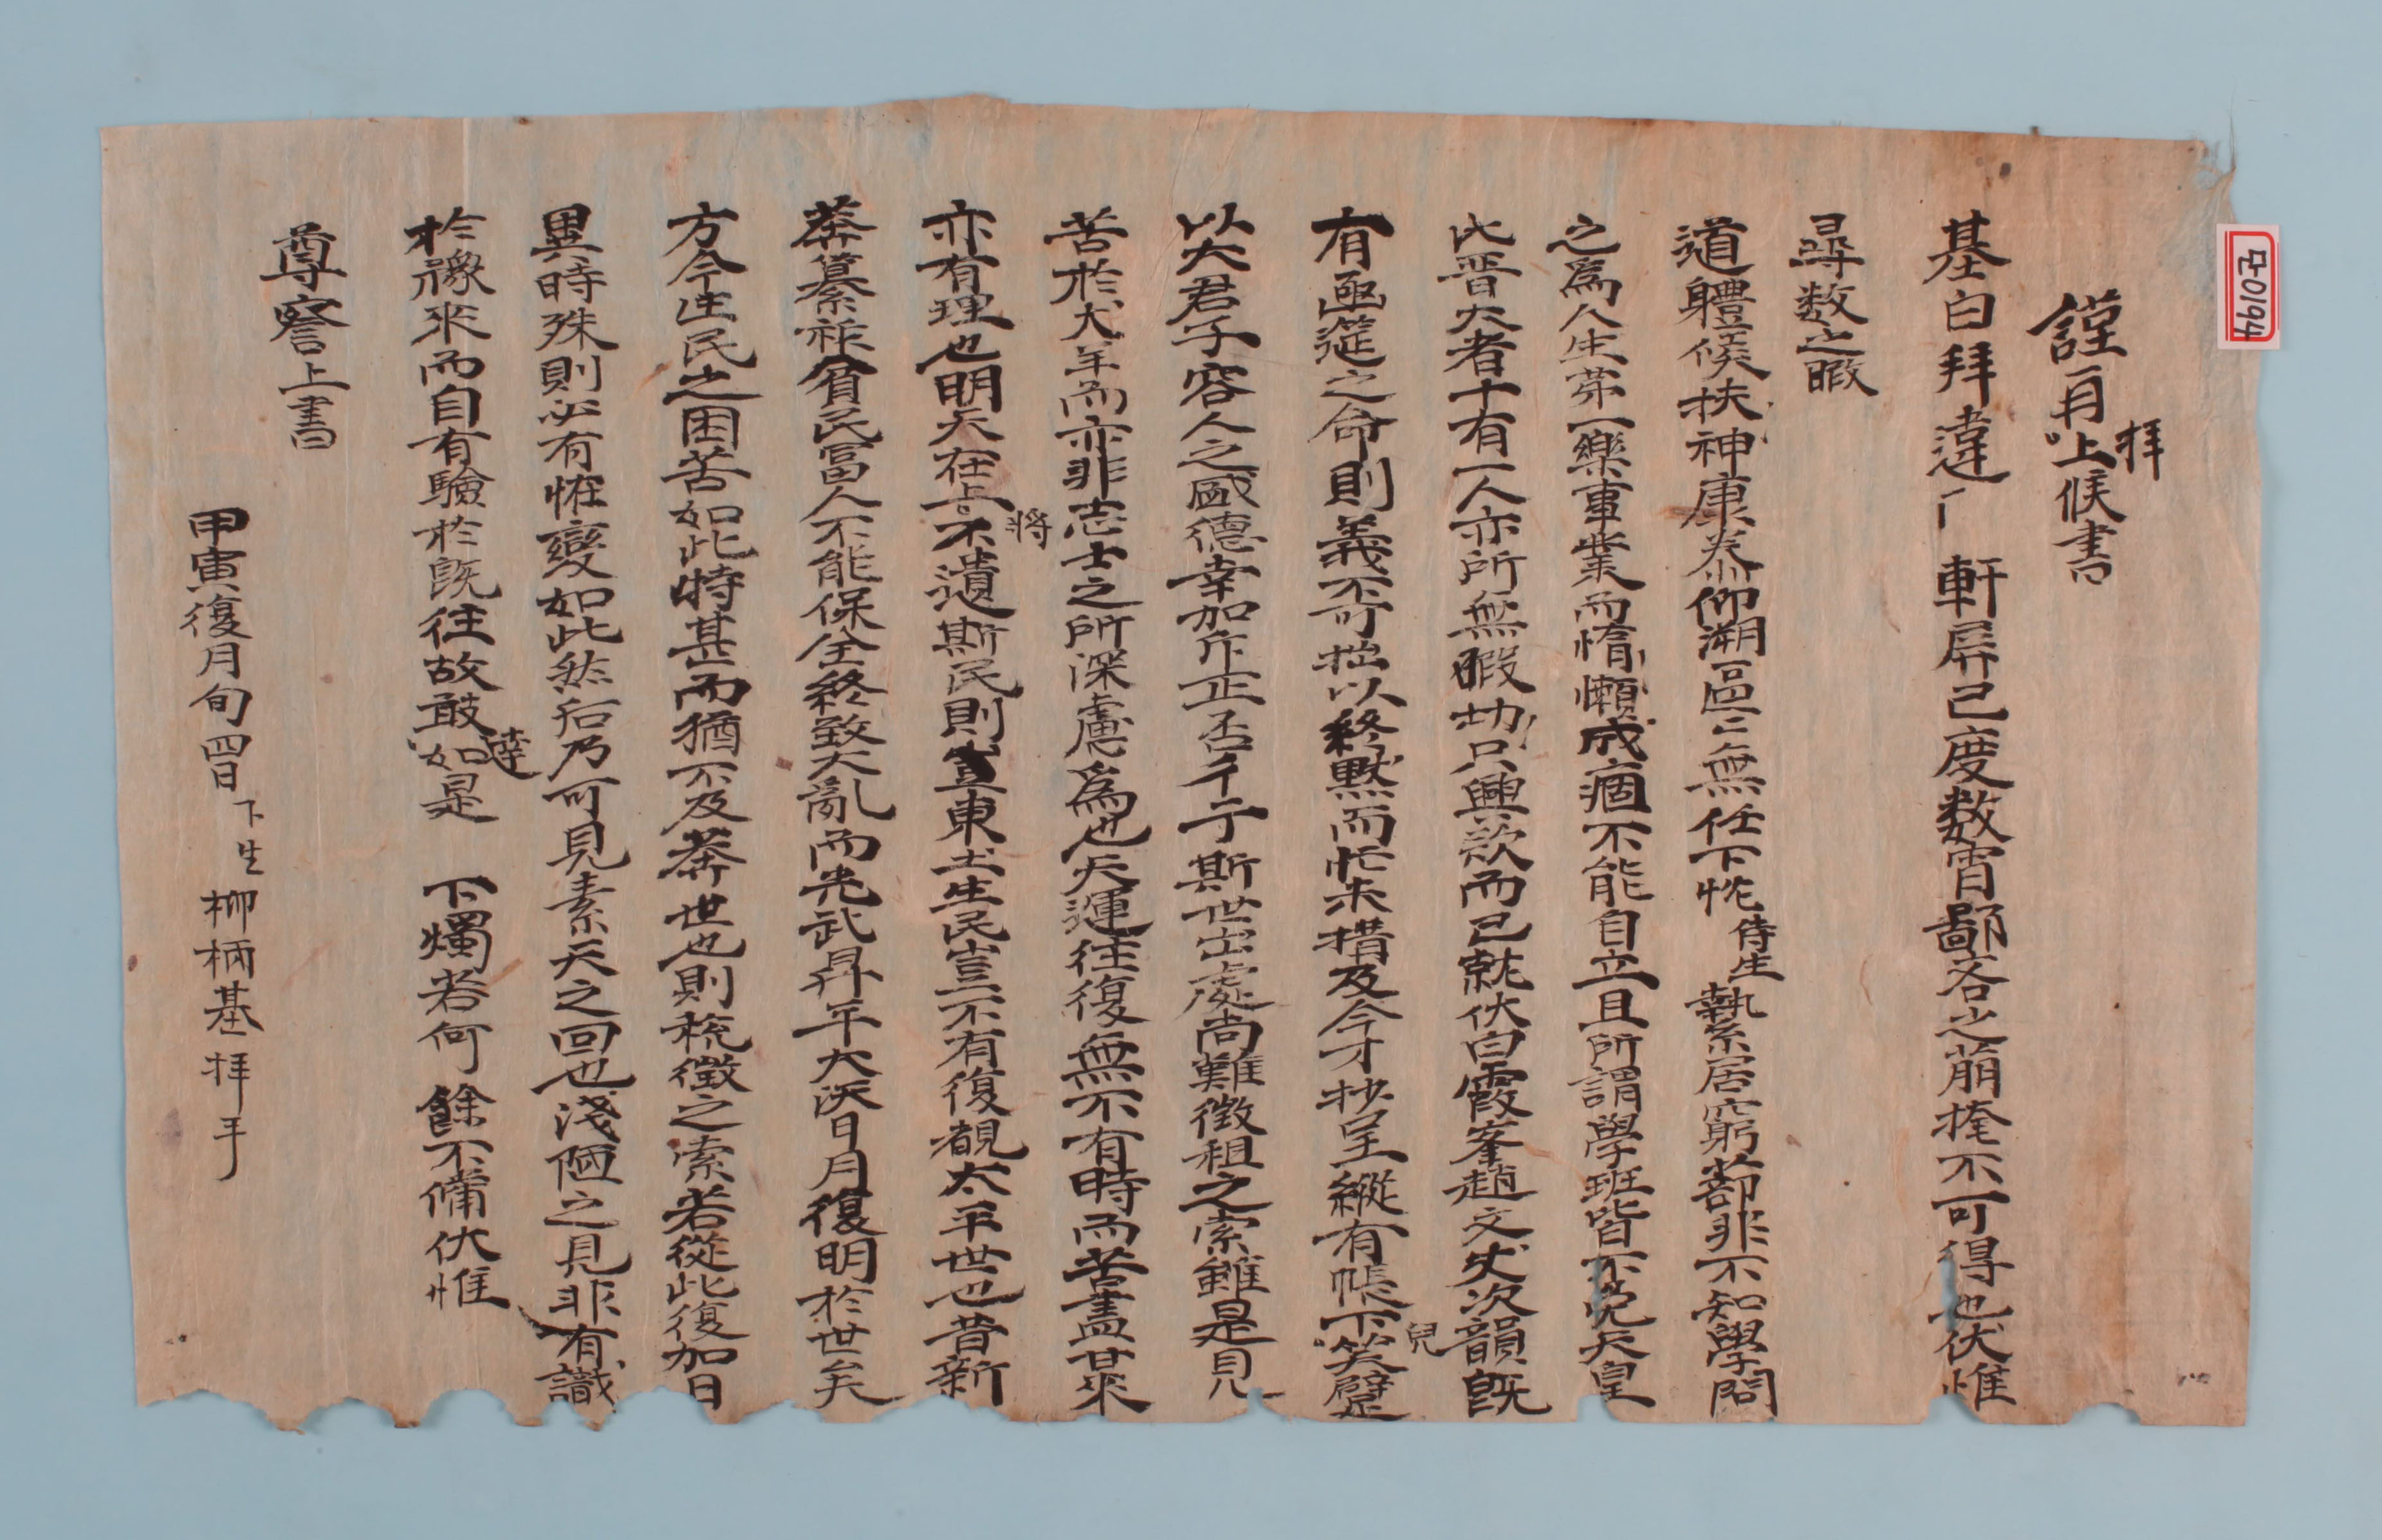 모-0194
謹再拜上候書
基白拜違 軒屛已度數宵鄙吝之萠掩不可得也伏惟
尋數之暇
道軆候扶神康泰仰溯區〻無任下忱侍生 縶居窮蔀非不知學問
之爲人生第一樂事業而惰懶成痼不能自立且所謂學班皆不免天皇
氏晋大者十有一人亦所無暇劫只興歎而已就伏白霞峯趙文丈次韻旣
有亟蹤之命則義不可拙以終默而忙未措及今才抄呈縱有帳下兒笑躄
以大君子容人之盛德幸加斥正否千千斯世出處尚難徵租之索雖是見
苦於犬羊而亦非志士之所深慮爲也天運往復無不有時而苦盡甘來
亦有理也明天在上將不遺斯民則東土生民豈不有復覩太平世也昔新
莽簒祚貧民富人不能保全終致大亂而光武昇平大沃日月復明於世矣
方今生民之困苦如此特甚而猶不及莽世也則稅徵之索若從此復加日
異時殊則必有恠變如此然后乃可見素天之回也淺陋之見非有識
於豫來而自有驗於旣往故敢達如是 下燭若何 餘不備伏惟
尊察上書
甲寅復月旬四日 下生 柳柄基 拜手